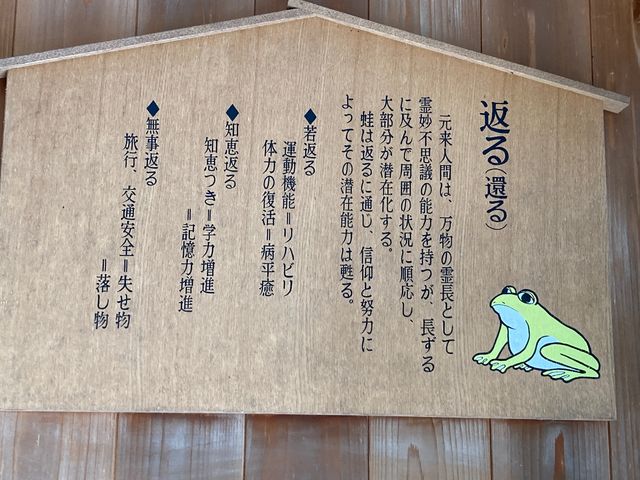 返る（還る）
元来人間は、万物の霊長として
霊妙不思議の能力を持つが、長ずる
に及んで周囲の状況に順応し、
大部分が潜在化する。
蛙は返るに通じ、信仰と努力に
よってその潜在能力は甦る。
◆若返る
運動機能＝リハビリ
体力の復活＝病平癒
◆知恵返る
知恵つき＝学力増進
＝記憶力増進
◆無事返る
旅行、交通安全＝失せ物
＝落し物